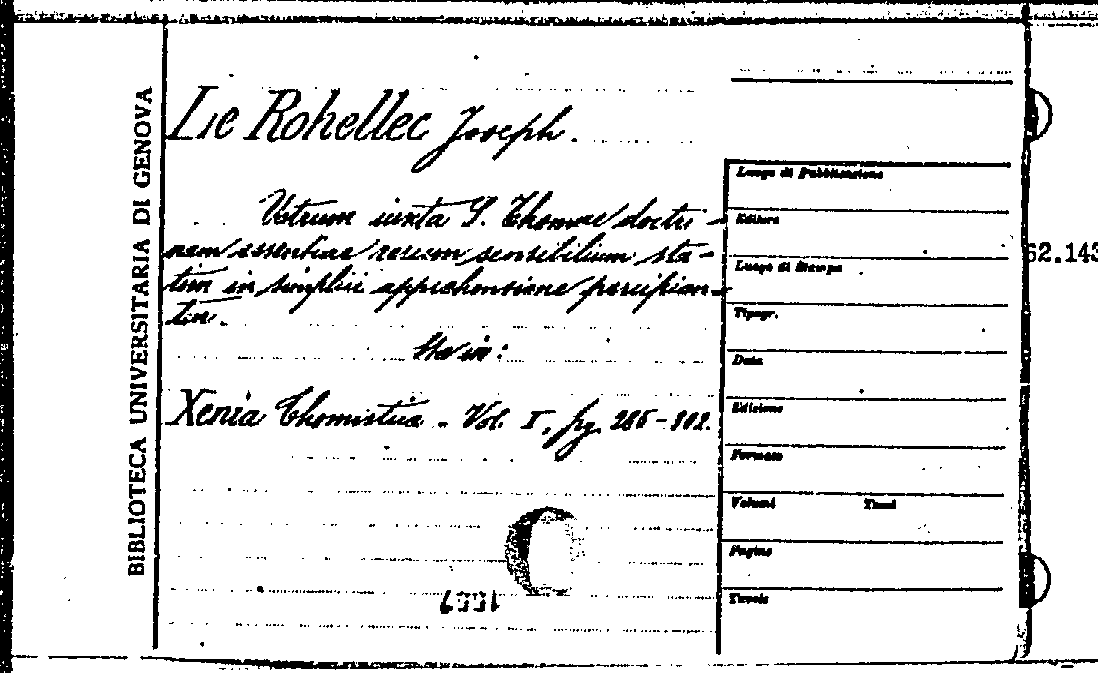 BIBLIOTECA UNIVERSITARIA DI GENOVA
Le Rohellec Joseph.
Utrum iuxta S. Thomae doctri-
nam essentiae rerum sensibilium sta-
tim in simplici apprehensione percipian-
tur.
Sta in:
Xenia Thomistica - Vol. I, pg. 285-302.
Luogo di Pubblicazione
Editore
Luogo di Stampa
Tipogr.
Data
Edizione
Formato
Volumi Tomi
Pagine
Tavole
62.143